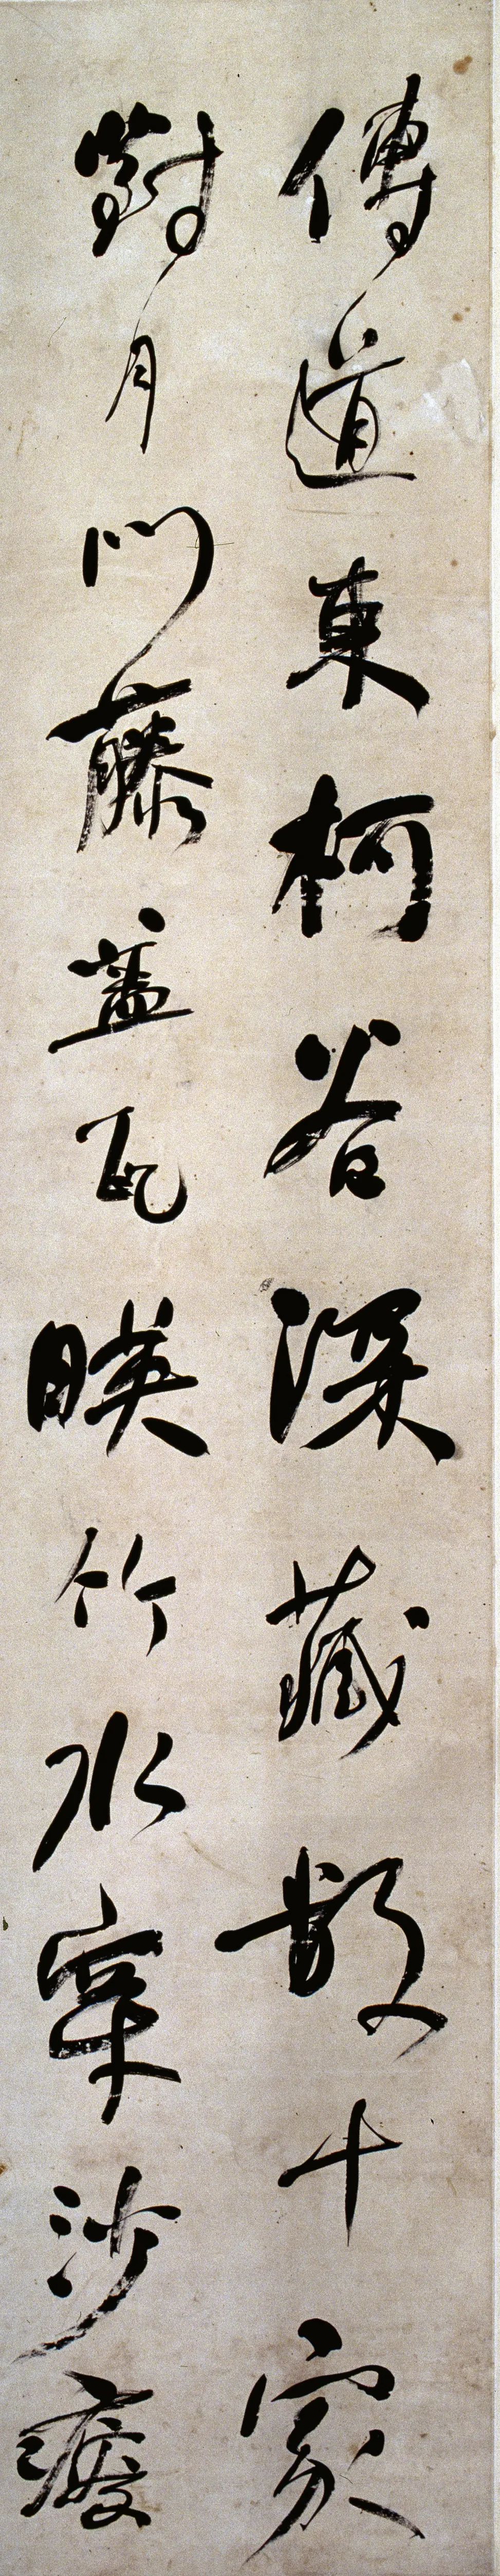 傳道東柯谷深藏數十家
對月門藤盖瓦映竹水穿沙瘦